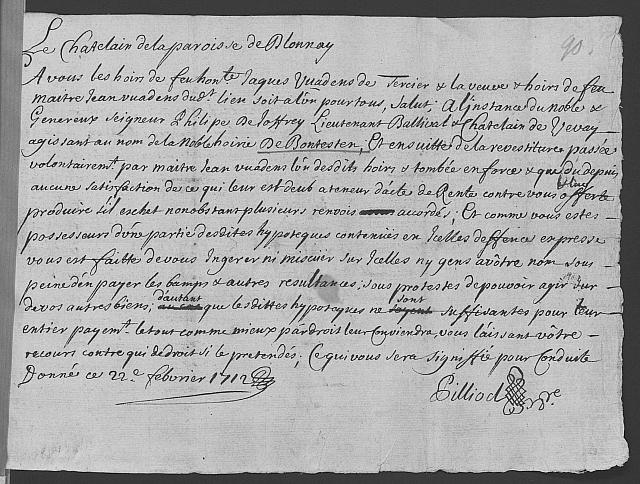 90.
Le Chatelain de la paroisse de Blonnay
A vous les hoirs de feu hon.te Jaques Vuadens de Tercier & la veuve & hoirs de feu
maitre Jean Vuadens dud.t lieu soit a l'un pour tous, Salut; A l'instance du Noble &
Genereux Seigneur Philipe De Joffrey Lieutenant Ballival & Chatelain de Vevay
agissant au nom de la Noble hoirie De Bontesten, Et ensuitte de la revestiture passée
volontairem.t par maitre Jean Vuadens l'un desdits hoirs & tombée en force & que du depuis
aucune satisfaction de ce qui leur est deub a teneur d'acte de Rente contre vous offerte
& luy
produire s'il eschet nonobstant plusieurs renvois acordés; Et comme vous estes
possesseurs d'une partie desdites hypoteques contenües en Icelles deffence expresse
vous est faitte de vous Ingerer ni miscier sur Icelles ny gens a vôtre nom sous
peine d'en payer les bamps & autres resultances; sous protestes de pouvoir agir sur
de vos autres biens; d'autant que lesdittes hypoteques ne sont suffisantes pour leur
entier payem.t le tout comme mieux par droit leur Conviendra, vous laissant vôtre
recours contre qui de droit si le pretendés; Ce qui vous sera signiffié pour Conduitte
Donné ce 22.e febvrier 1712
Pilliod